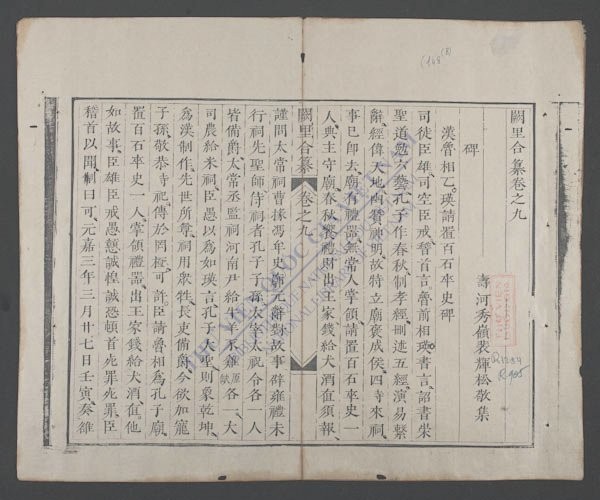 (168 (8)
闕里合纂卷之九
壽河秀嶺裴輝松敬集
碑
漢魯相乙瑛請置百石卒史碑
司徒臣雄司空臣戒誓首言魯前相瑛書言詔書崇
聖道勉六藝孔子作春秋制孝經刪述五經演易繫
辭經偉天地幽贊神明故特立廟褒成侯四時來祠
事已即去廟有禮器無常人掌領請置百石卒史一
人典主守廟春秋饗禮財出王家錢給犬酒直須報
闕里合纂 卷之九
謹問太常祠曹掾馮牟史郭元辭對故事辟雍禮未
行祠先聖師侍祠者孔子子孫太宰太祝令各一人
皆備爵太常丞監祠河南尹給牛羊豕雞
各一大
司農給米祠臣愚以為如瑛言孔子大聖則象乾坤
為漢制作先世所尊祠用衆牲長吏備爵今欲加寵
子孫敬恭寺祀傳於罔極可許臣請魯相為孔子廟
置百石卒史一人掌領禮器出王家錢給犬酒直他
如故事臣雄臣戒愚戇誠惶誠恐頓首死罪死罪臣
稽首以聞制曰可元嘉三年三月廿七日壬寅奏雒
R.1284
R.905